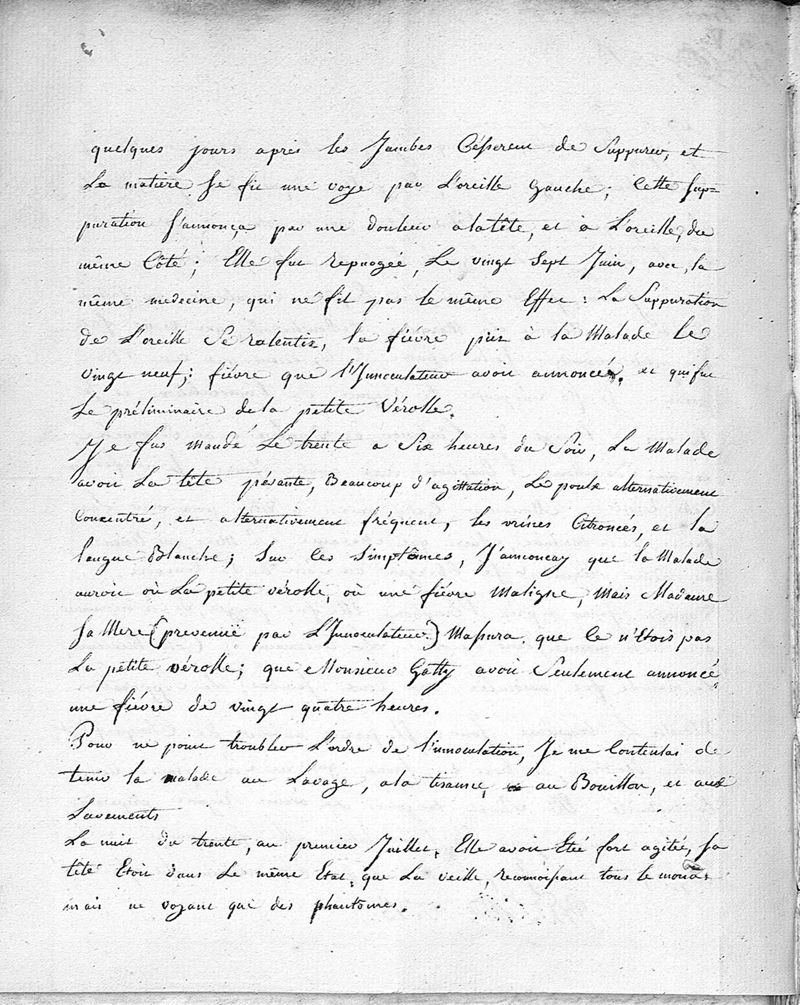 quelques jours après les Jambes Césserent de Suppurer, et
La matière se fit une voye par L'oreille Gauche; Cette sup=
puration s'annonça par une douleur alatête, et à L'oreille, du
même Côté; Elle fut repurgée, Le vingt Sept Juin, avec la
même medecine, qui ne fit pas le même Effet: La Suppuration
de L'oreille Se ralentit, la fiévre prit à la Malade Le
Vingt neuf; fiévre que l'Innoculateur avoit annoncée, et qui fut
Le préliminaire de la petite Vérolle.
Je fus mandé Le trente a Six heures du Soir, La Malade
avoit La tête pésante, Beaucoup d'agittation, Le poulx alternativement
Concentré, et alternativement fréquent, les urines Citronées, et la
langue Blanche; Sur ces Simptômes, J'annonçay que la Malade
auroit où La petite vérolle, où une fiévre Maligne, Mais Madame
Sa Mere (prevenüe par L'Innoculateur) M'assura que Ce n'Etoit pas
La petite vérolle; que Monsieur Gatty avoit Seulement annoncé
une fiévre de vingt quatre heures.
Pour ne point troubler L'ordre de l'innoculation, Je me Contentai de
tenir la malade au Lavage, ala tisanne, au Bouillon, et aux
Lavements
La nuit du trente, au premier Juillet, Elle avoit Eté fort agitée, Sa
tête Etoit dans Le même Etat, que La veille, reconnoissant tous le monde
mais ne voyant que des phantomes.